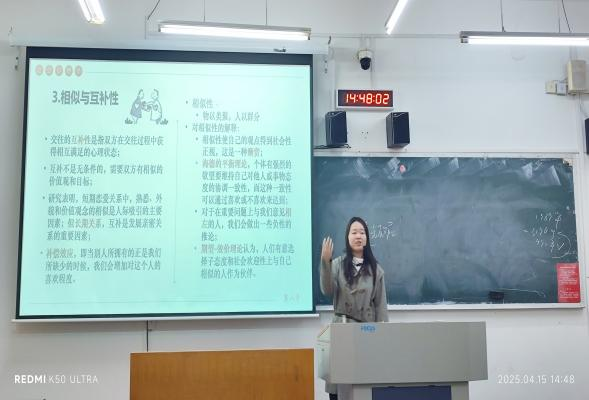 3.相似与互补性
• 交往的互补性是指双方在交往过程中获
得相互满足的心理状态；
• 互补不是无条件的，需要双方有相似的
价值观和目标；
• 研究表明，短期恋爱关系中，熟悉、外
貌和价值观念的相似是人际吸引的主要
因素；但长期关系，互补是发展亲密关
系的重要因素；
• 补偿效应，即当别人所拥有的正是我们
所缺少的时候，我们会增加对这个人的
喜欢程度。
• 相似性
• 物以类聚，人以群分
• 对相似性的解释：
• 相似性使自己的观点得到社会性
正视，这是一种酬赏；
• 海德的平衡理论，个体有强烈的
欲望要维持自己对他人或事物态
度的协调一致性，而这种一致性
可以通过喜欢或不喜欢来达到；
• 对于在重要问题上与我们意见相
左的人，我们会做出一些负性的
推论；
• 期望-效价理论认为，人们有意选
择子态度和社会欢迎性上与自己
相似的人作为伙伴。
第八节
14:48:02
REDMI K50 ULTRA
2025.04.15 14:48